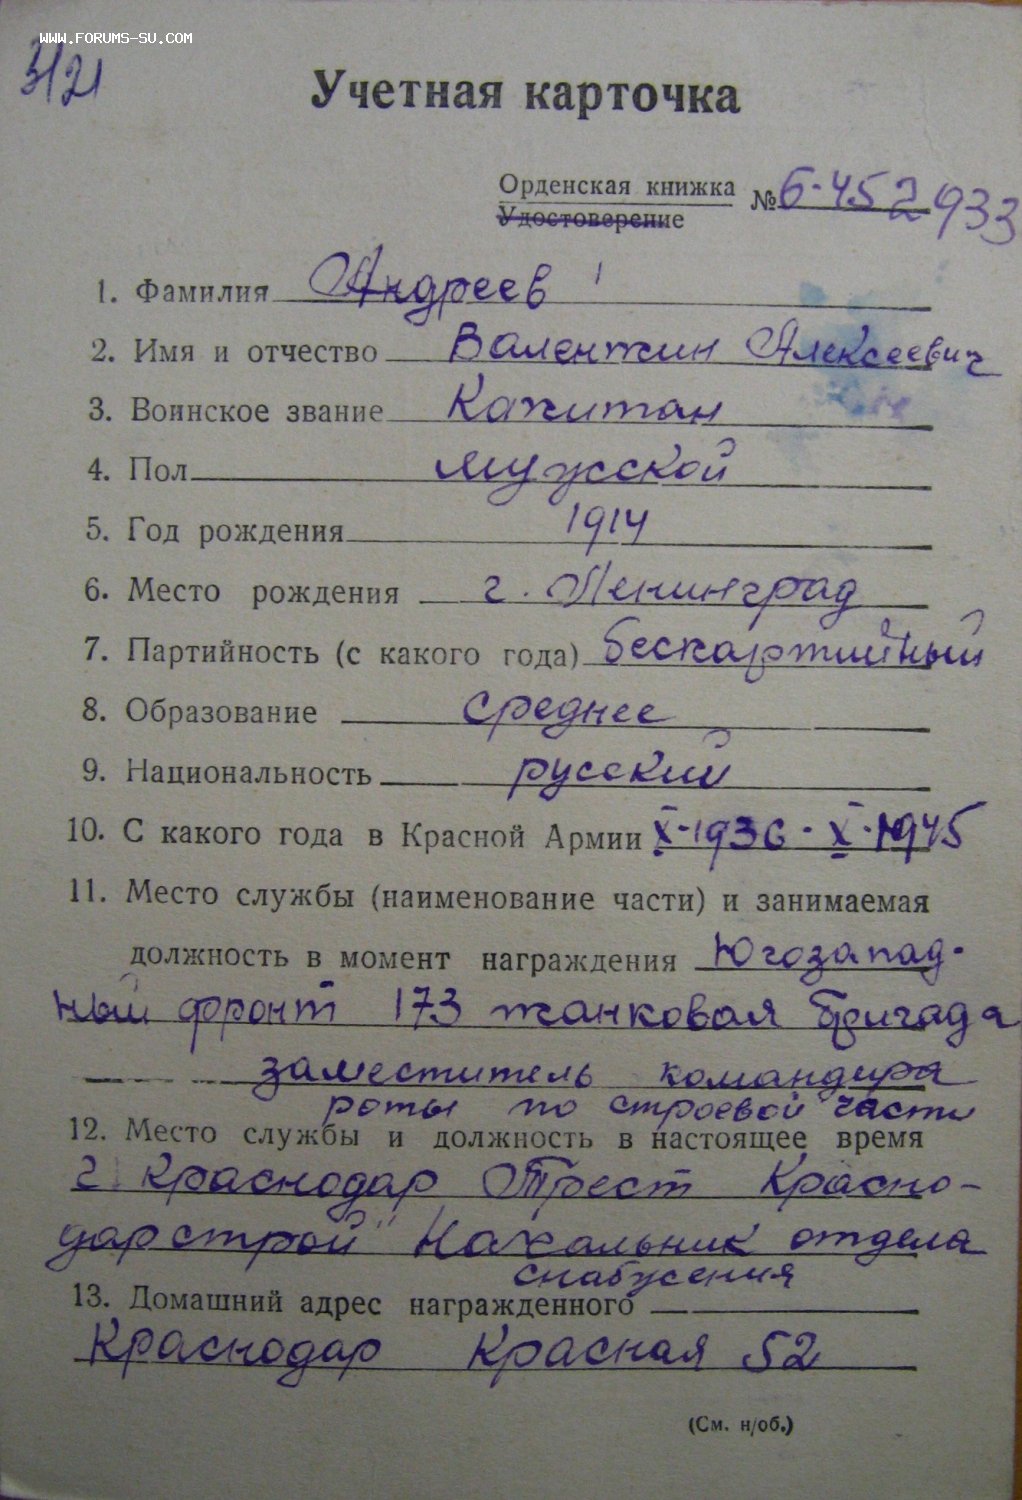 www.FORUMS-SU.COM
3121
Учетная карточка
Орденская книжка
Удостоверение
№ Б-452933
1. Фамилия Андреев
2. Имя и отчество Валентин Алексеевич
3. Воинское звание Капитан
4. Пол мужской
5. Год рождения 1914
6. Место рождения г. Ленинград
7. Партийность (с какого года) беспартийный
8. Образование среднее
9. Национальность русский
10. С какого года в Красной Армии X-1936 - X-1945
11. Место службы (наименование части) и занимаемая
должность в момент награждения Югозапад-
ный фронт 173 танковая бригада
заместитель командира
роты по строевой части
12. Место службы и должность в настоящее время
г. Краснодар Трест Красно-
дарстрой" Начальник отдела
снабжения
13. Домашний адрес награжденного
Краснодар Красная 52
(См. н/об.)